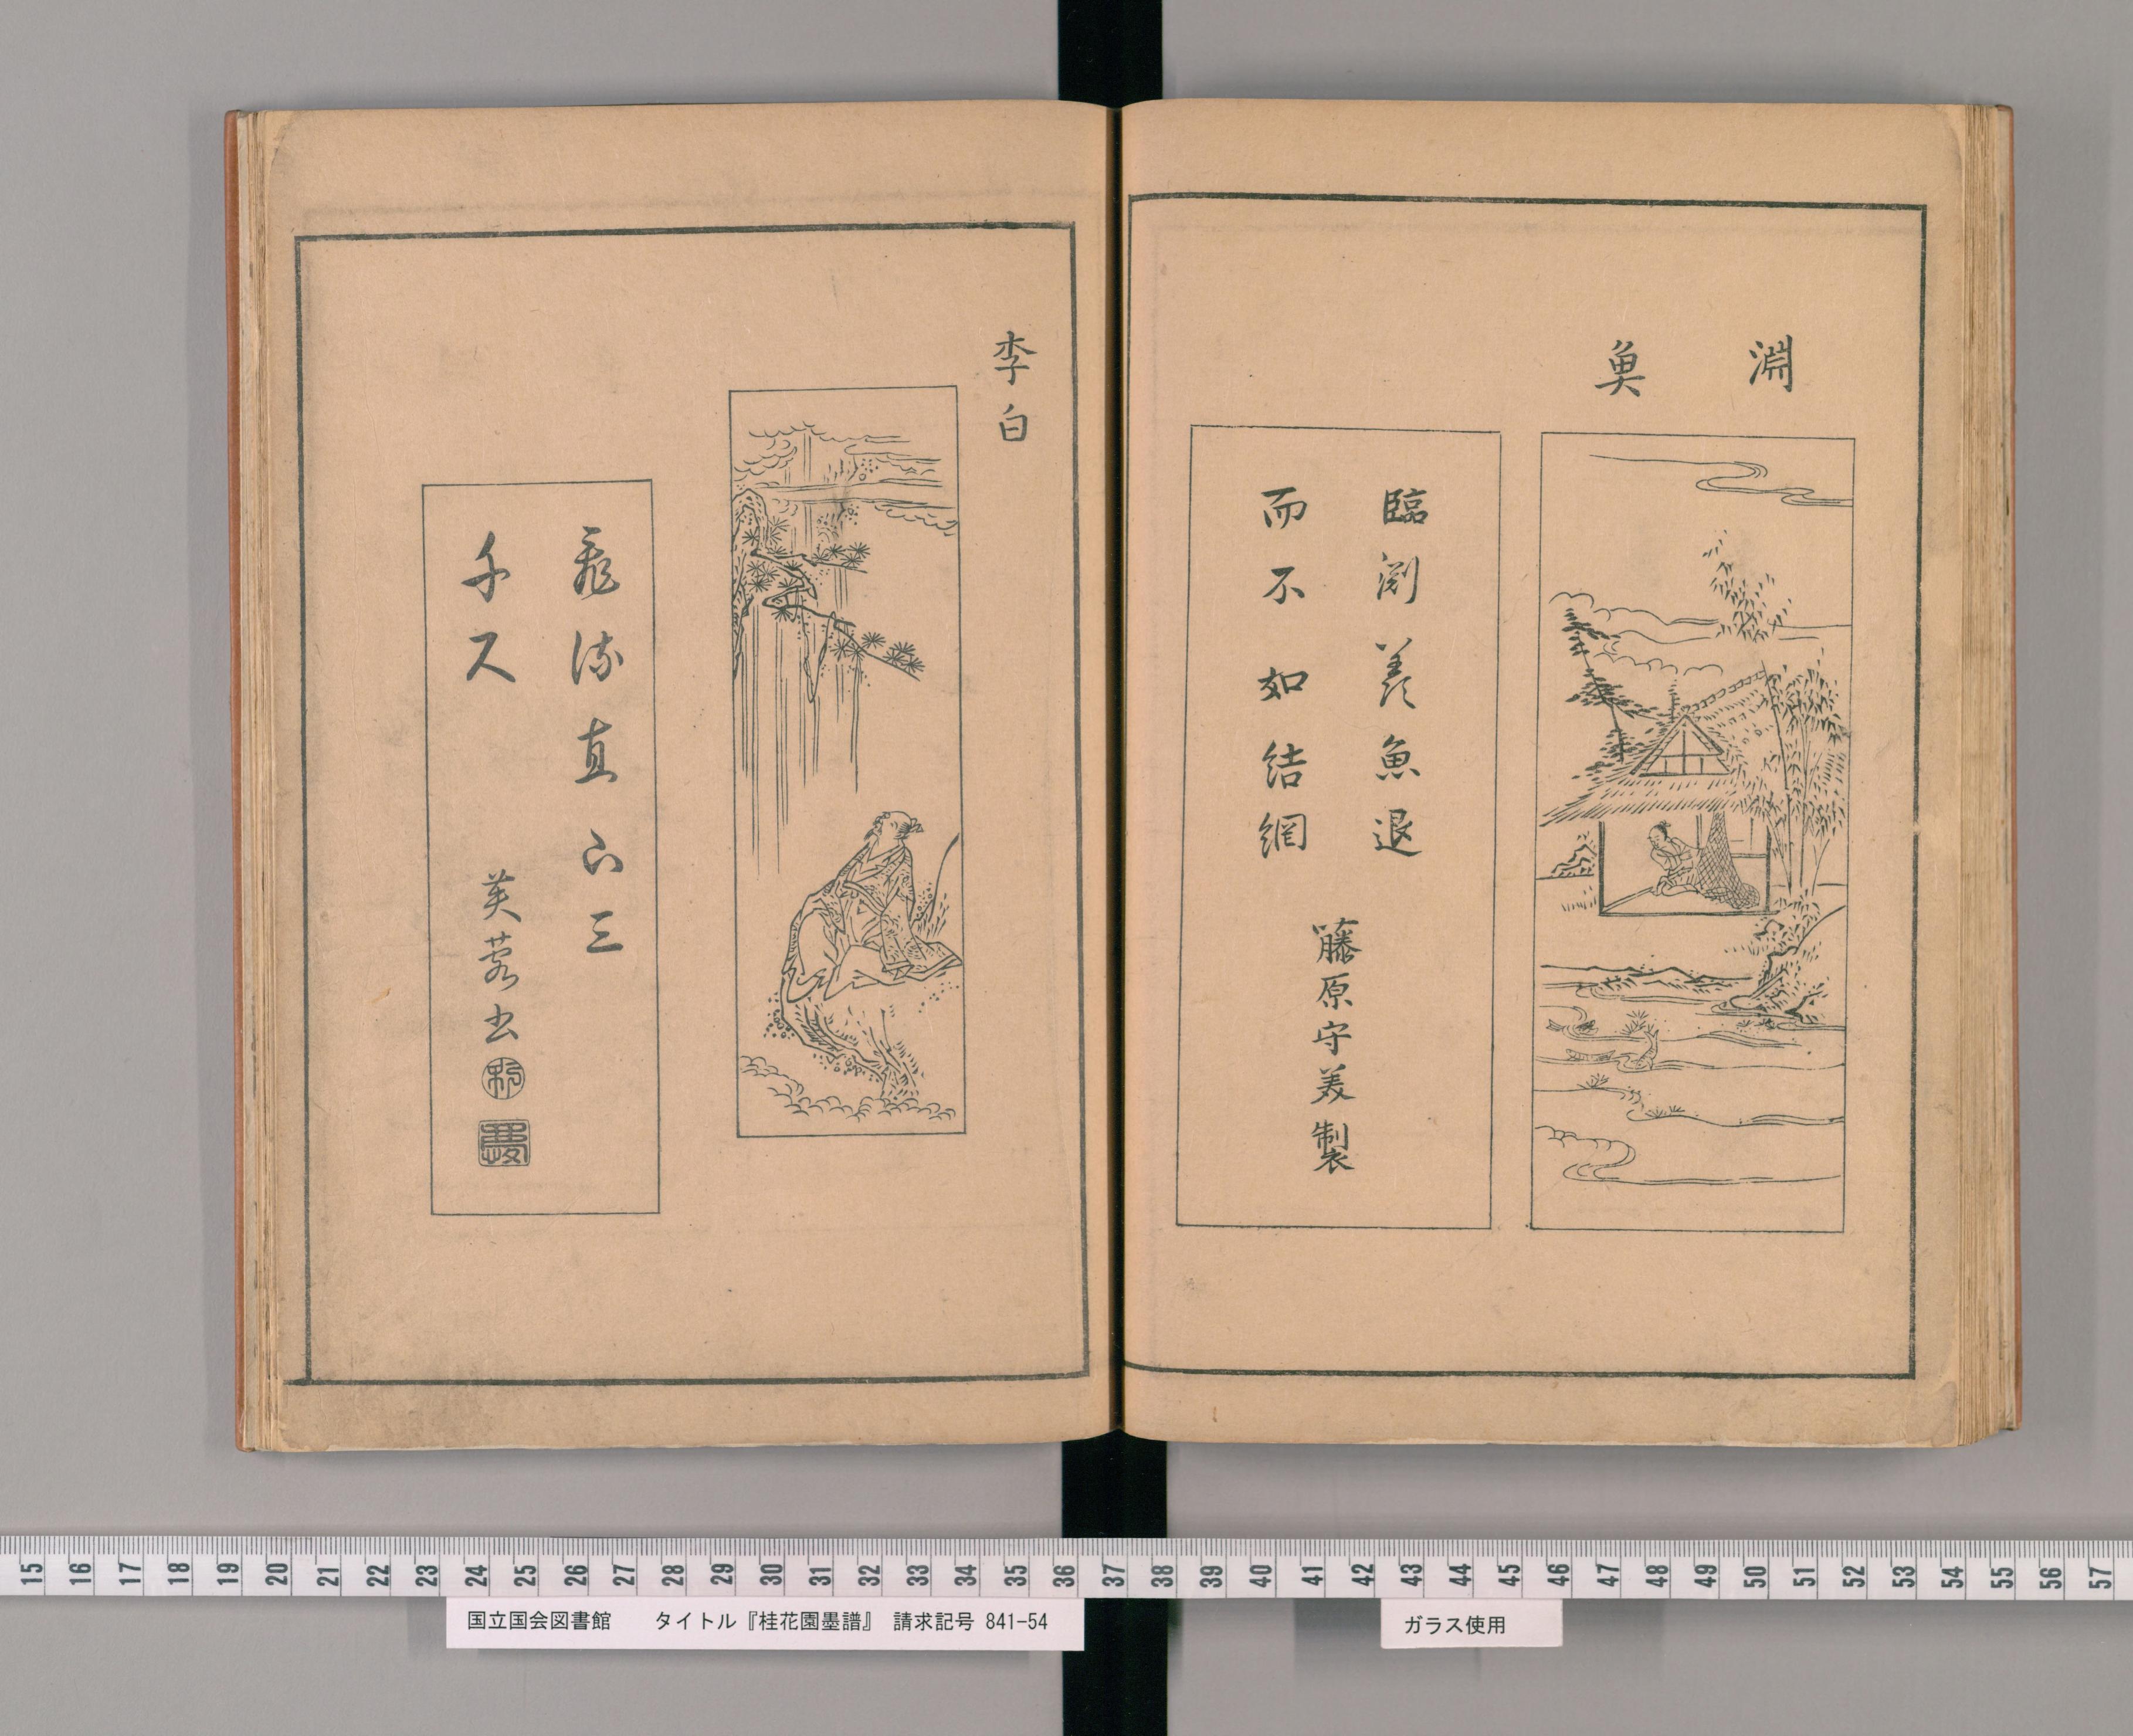 淵
魚
臨淵羨魚退
而不如結網
藤原守美製
李白
飛流直下三
千尺
芙蓉書
国立国会図書館 タイトル『桂花園墨譜』 請求記号 841-54
ガラス使用
15 16 17 18 19 20 21 22 23 24 25 26 27 28 29 30 31 32 33 34 35 36 37 38 39 40 41 42 43 44 45 46 47 48 49 50 51 52 53 54 55 56 57